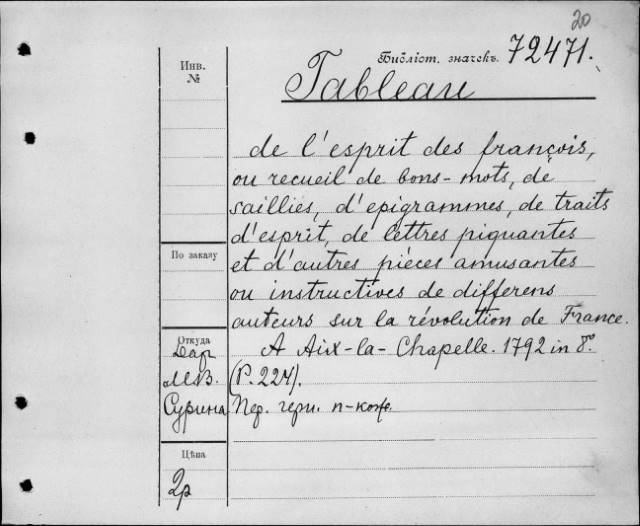 20
Инв.
№
Библіот. значекъ. 72471.
Tableau
de l'esprit des françois,
ou recueil de bons-mots, de
saillies, d'epigrammes, de traits
d'esprit, de lettres piquantes
По заказу
et d'autres pièces amusantes
ou instructives de differens
auteurs sur la révolution de France.
Откуда
Дар
A Aix-la-Chapelle. 1792 in 8°.
М.В.
(P. 224).
Сурина
Пер. черн. п-кож.
Цѣна
2р